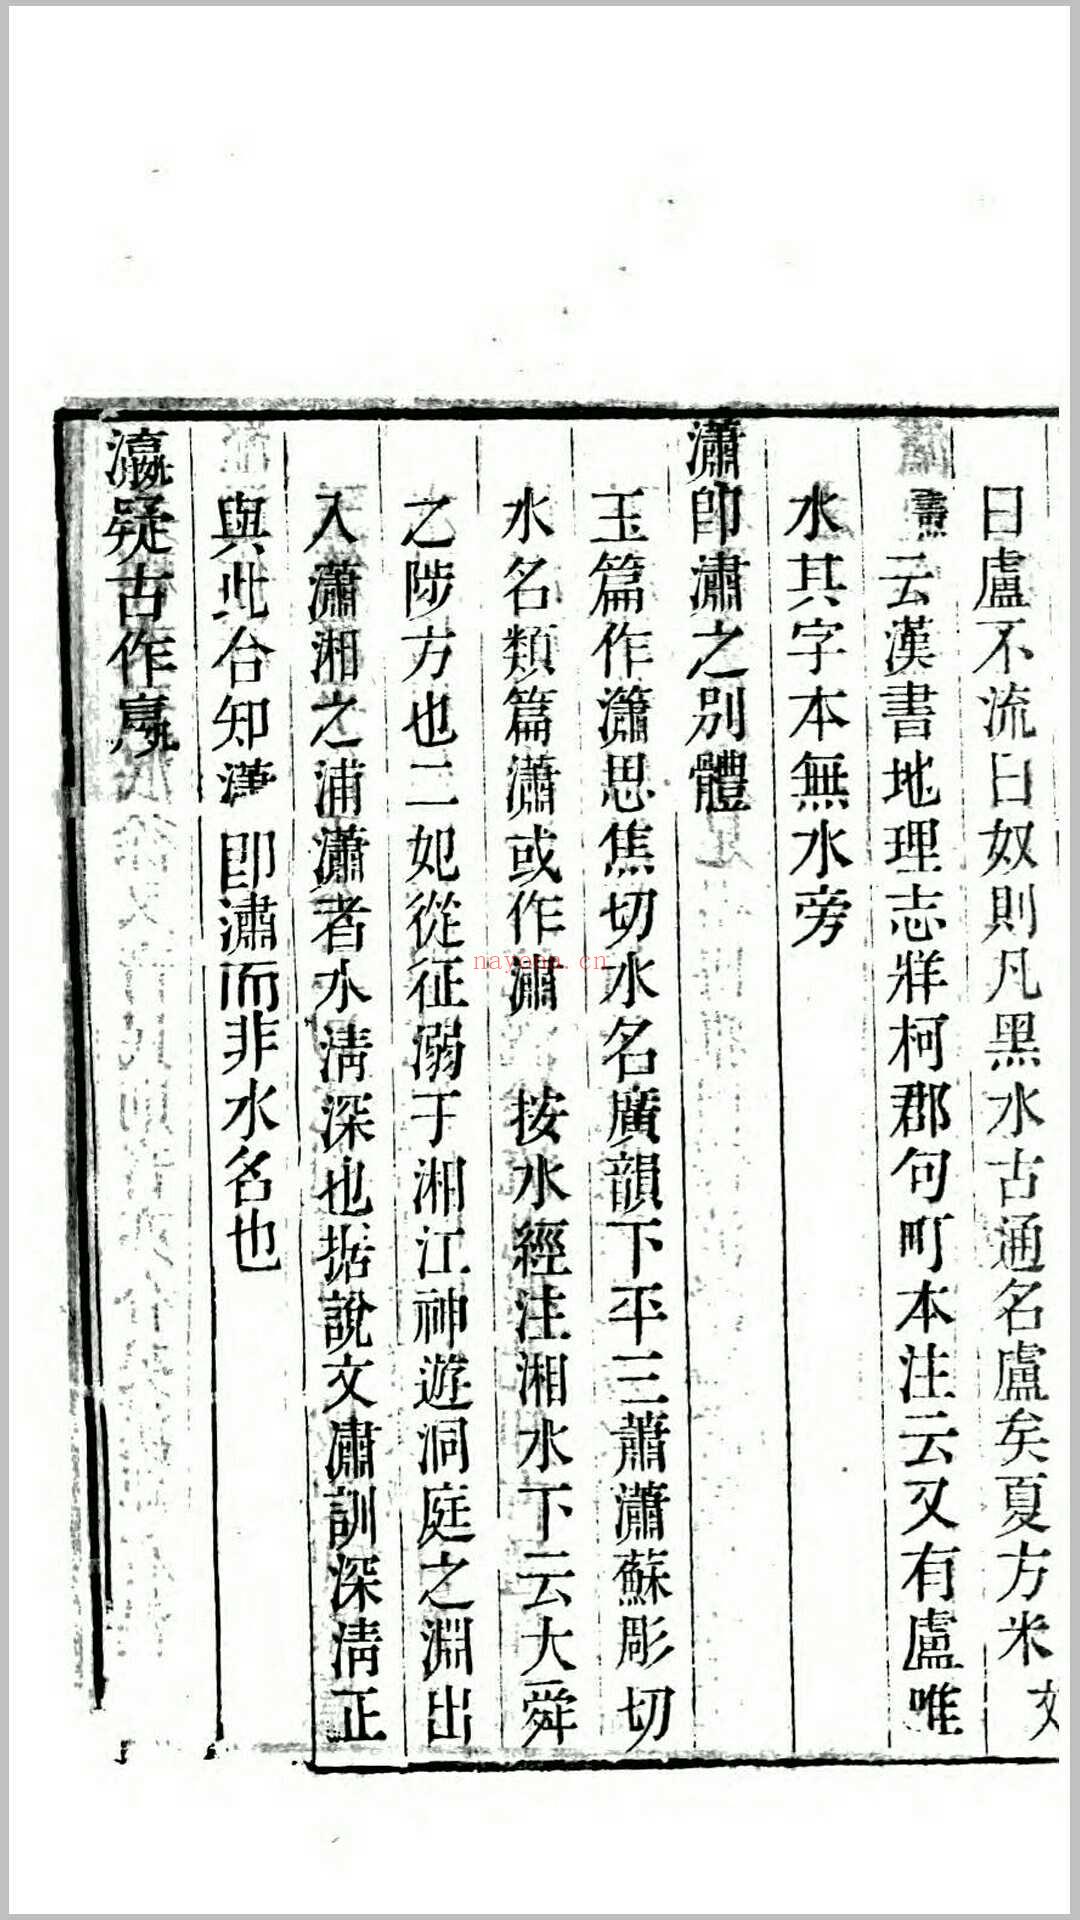 曰盧不流曰奴則凡黑水古通名盧矣夏方米
燾云漢書地理志牂柯郡句町本注云又有盧唯
水其字本無水旁
瀟卽潚之別體
玉篇作瀟思焦切水名廣韻下平三蕭瀟蘇彫切
水名類篇瀟或作潚 按水經注湘水下云大舜
之陟方也二妃從征溺于湘江神遊洞庭之淵出
入瀟湘之浦瀟者水淸深也据說文潚訓深淸正
與此合知瀟卽潚而非水名也
瀛疑古作嬴
nayona.cn